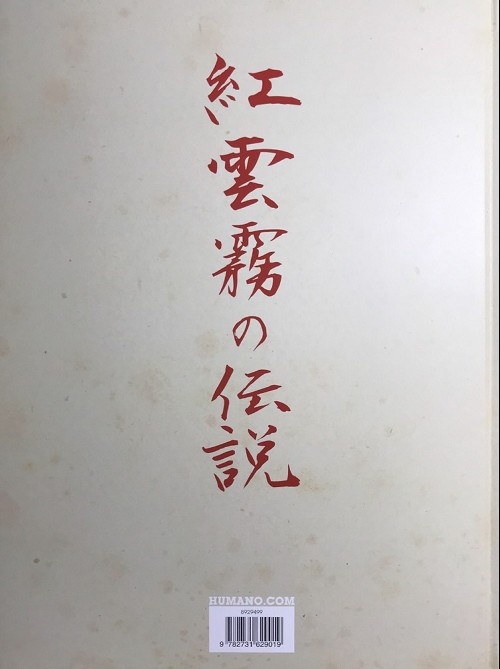 紅雲霧の伝説
HUMANO.COM
6929499
9 782731 629019